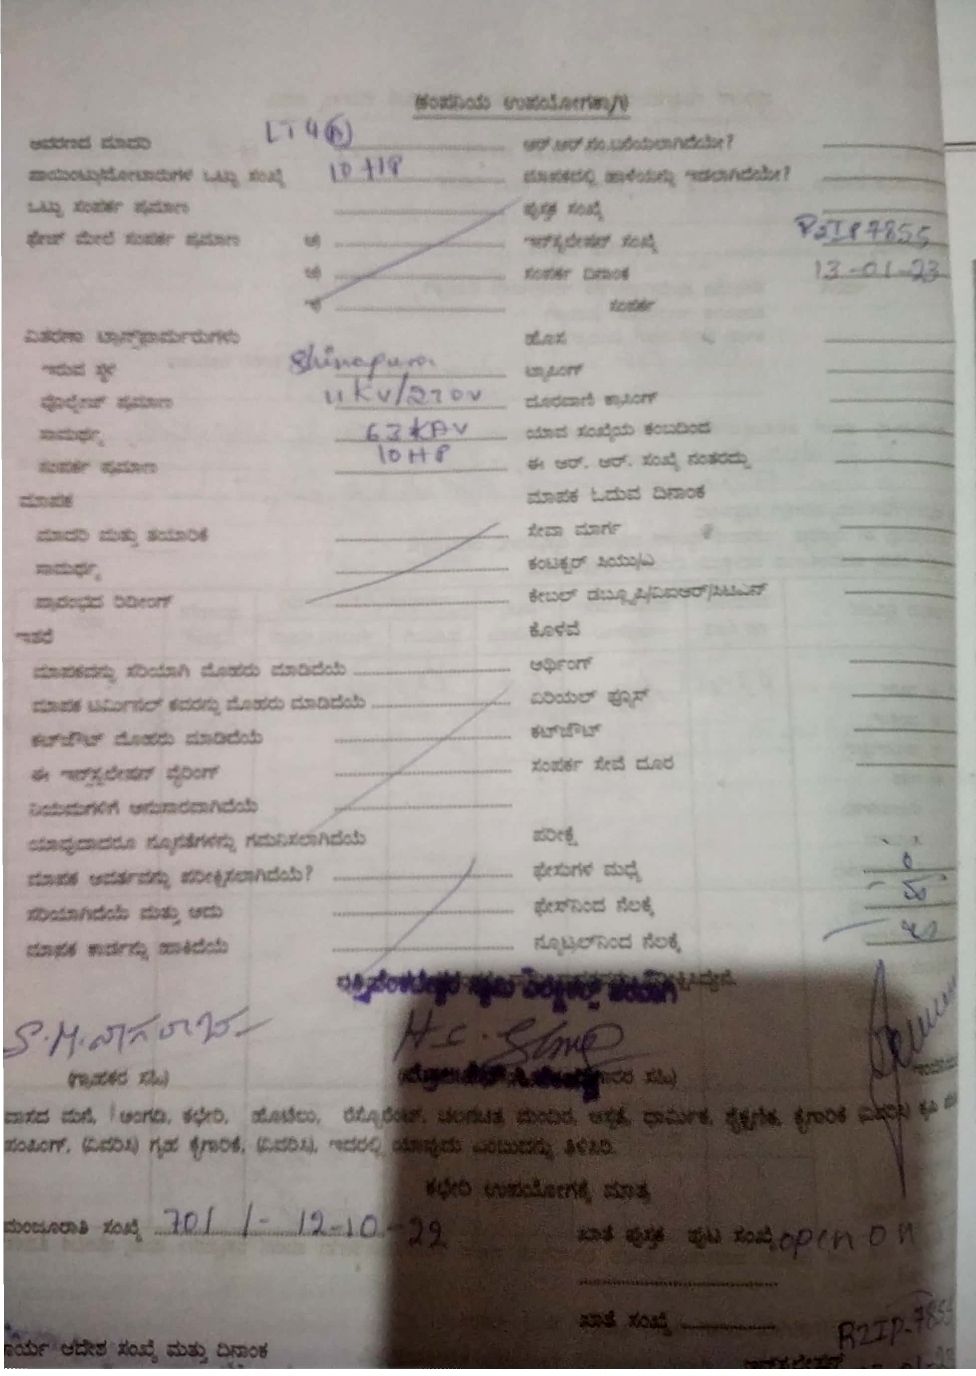 (ಕಂಪನಿಯ ಉಪಯೋಗಕ್ಕಾಗಿ)
ಆವರಣದ ಮಾದರಿ LT4(A) ಆರ್.ಆರ್.ಸಂ.ಬರೆಯಲಾಗಿದೆಯೇ?
ಪಾಯಿಂಟು/ಮೋಟಾರುಗಳ ಒಟ್ಟು ಸಂಖ್ಯೆ 10 HP ಮಾಪಕದಲ್ಲಿ ಹಾಳೆಯನ್ನು ಇಡಲಾಗಿದೆಯೇ?
ಒಟ್ಟು ಸಂಪರ್ಕ ಪ್ರಮಾಣ ಪುಸ್ತಕ ಸಂಖ್ಯೆ
ಫೇಜ್ ಮೇಲೆ ಸಂಪರ್ಕ ಪ್ರಮಾಣ ಅ) ಇನ್‌ಸ್ಟಲೇಷನ್ ಸಂಖ್ಯೆ R2IP7855
ಆ) ಸಂಪರ್ಕ ದಿನಾಂಕ 13-01-23
ಇ) ಸಂಪರ್ಕ
ವಿತರಣಾ ಟ್ರಾನ್ಸ್‌ಫಾರ್ಮರುಗಳು ಹೊಸ
ಇರುವ ಸ್ಥಳ ಟ್ರಾಸಿಂಗ್
ವೊಲ್ಟೇಜ್ ಪ್ರಮಾಣ 11KV/230V ದೂರವಾಣಿ ಕ್ರಾಸಿಂಗ್
ಸಾಮರ್ಥ್ಯ 63KAV ಯಾವ ಸಂಖ್ಯೆಯ ಕಂಬದಿಂದ
ಸಂಪರ್ಕ ಪ್ರಮಾಣ 10HP ಈ ಆರ್. ಆರ್. ಸಂಖ್ಯೆ ನಂತರದ್ದು
ಮಾಪಕ ಮಾಪಕ ಓದುವ ದಿನಾಂಕ
ಮಾದರಿ ಮತ್ತು ತಯಾರಿಕೆ ಸೇವಾ ಮಾರ್ಗ
ಸಾಮರ್ಥ್ಯ ಕಂಟಕ್ಟರ್ ಸಿಯು/ಎ
ಪ್ರಾರಂಭದ ರಿಡಿಂಗ್ ಕೇಬಲ್ ಡಬ್ಲ್ಯೂಪಿ/ವಿಐಆರ್/ಸಿಟಿಎಸ್
ಇತರೆ ಕೊಳವೆ
ಮಾಪಕವನ್ನು ಸರಿಯಾಗಿ ಮೊಹರು ಮಾಡಿದೆಯೆ ಅರ್ಥಿಂಗ್
ಮಾಪಕ ಟರ್ಮಿನಲ್ ಕವರನ್ನು ಮೊಹರು ಮಾಡಿದೆಯೆ ಏರಿಯಲ್ ಫ್ಯೂಸ್
ಕಟ್‌ಔಟ್ ಮೊಹರು ಮಾಡಿದೆಯೆ ಕಟ್‌ಔಟ್
ಈ ಇನ್‌ಸ್ಟಲೇಷನ್ ವೈರಿಂಗ್ ಸಂಪರ್ಕ ಸೇವೆ ದೂರ
ನಿಯಮಗಳಿಗೆ ಅನುಸಾರವಾಗಿದೆಯೆ
ಯಾವುದಾದರೂ ನ್ಯೂನತೆಗಳನ್ನು ಗಮನಿಸಲಾಗಿದೆಯೆ ಪರೀಕ್ಷೆ
ಮಾಪಕ ಆವರ್ತವನ್ನು ಪರೀಕ್ಷಿಸಲಾಗಿದೆಯೆ? ಫೇಸುಗಳ ಮಧ್ಯೆ
ಸರಿಯಾಗಿದೆಯೆ ಮತ್ತು ಅದು ಫೇಸ್‌ನಿಂದ ನೆಲಕ್ಕೆ
ಮಾಪಕ ಕಾರ್ಡನ್ನು ಹಾಕಿದೆಯೆ ನ್ಯೂಟ್ರಲ್‌ನಿಂದ ನೆಲಕ್ಕೆ
S.M.ನಾಗರಾಜ
(ಗ್ರಾಹಕರ ಸಹಿ)
ವಾಸದ ಮನೆ, ಅಂಗಡಿ, ಕಛೇರಿ, ಹೊಟೆಲು, ರೆಸ್ಟೊರೆಂಟ್, ಚಲನಚಿತ್ರ ಮಂದಿರ, ಆಸ್ಪತ್ರೆ, ಧಾರ್ಮಿಕ, ಶೈಕ್ಷಣಿಕ, ಕೈಗಾರಿಕೆ (ವಿವರಿಸಿ) ಕೃಷಿ
ಪಂಪಿಂಗ್, (ವಿವರಿಸಿ) ಗೃಹ ಕೈಗಾರಿಕೆ, (ವಿವರಿಸಿ), ಇದರಲ್ಲಿ ಯಾವುದು ಎಂಬುದನ್ನು ತಿಳಿಸಿರಿ.
ಕಛೇರಿ ಉಪಯೋಗಕ್ಕೆ ಮಾತ್ರ
ಮಂಜೂರಾತಿ ಸಂಖ್ಯೆ 701 /- 12-10-22 ಖಾತೆ ಪುಸ್ತಕ ಪುಟ ಸಂಖ್ಯೆ open on
ಖಾತೆ ಸಂಖ್ಯೆ R2IP-7855
ಕಾರ್ಯ ಆದೇಶ ಸಂಖ್ಯೆ ಮತ್ತು ದಿನಾಂಕ ಇನ್‌ಸ್ಟಲೇಷನ್